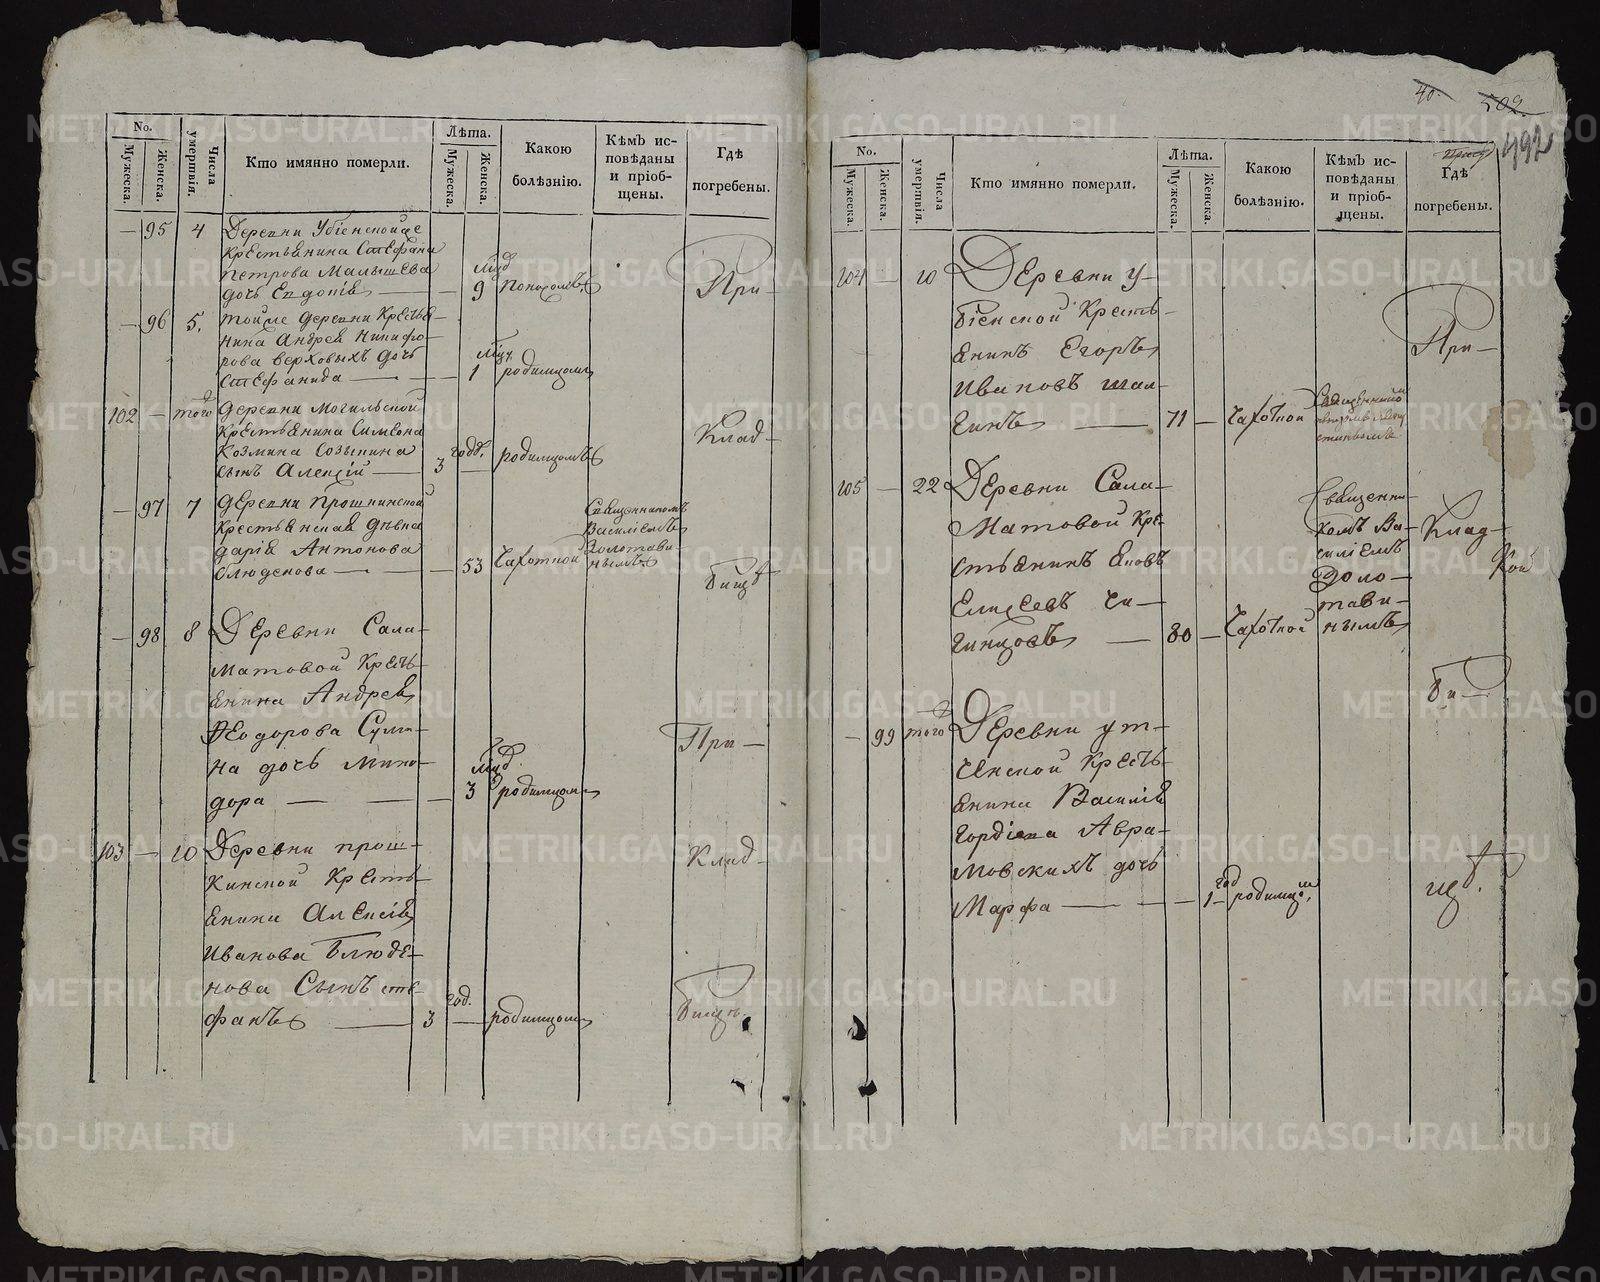 No.
Мужеска.
Женска.
Числа умертвія.
Кто имянно померли.
Лѣта.
Мужеска.
Женска.
Какою
болѣзнію.
Кѣмъ ис-
повѣданы
и пріоб-
щены.
Гдѣ
погребены.
— 95 4 Деревни Убіенской
Крестьянина Стефана
Петрова Малышева
дочь Евдокія — 9
При-
— 96 5. тойже деревни Крестья-
нина Андрея Никифо-
рова Верховыхъ дочь
Стефанида — — 1 родимцомъ
102 — того Деревни Могильской
Крестьянина Симеона
Козмина Созыкина
сынъ Алексій — 3 — родимцомъ
Клад-
— 97 7 Деревни Прошкинской
Крестьянская дѣвка
Дарія Антонова
Блюденова — — 53 Чахоткой
Священникомъ
Василіемъ
Золотави-
нымъ
бищѣ
— 98 8 Деревни Сала-
матовой Кресть-
янина Андрея
Ѳеодорова Сули-
на дочь Мино-
дора — — — 3 родимцомъ
При —
103 — 10 Деревни прош-
кинской Кресть-
янина Алексія
Иванова Блюде-
нова Сынъ Сте-
фанъ — 3 год. — родимцомъ
Клад-
бищѣ
40.
509
492
No.
Мужеска.
Женска.
Числа умертвія.
Кто имянно померли.
Лѣта.
Мужеска.
Женска.
Какою
болѣзнію.
Кѣмъ ис-
повѣданы
и пріоб-
щены.
Гдѣ
погребены.
104 — 10 Деревни У-
біенской Кресть-
янинъ Егоръ
Ивановъ Шал-
гинъ — 71 — Чахоткой
При-
105 — 22 Деревни Сала-
матовой Кре-
стьянинъ Яковъ
Елисеевъ Чи-
гинцовъ — 80 — Чахоткой
Священни-
комъ Ва-
силіемъ
Золо-
тави-
нымъ
Клад-
би-
— 99 того Деревни ут-
ченской Кресть-
янина Василія
Гордіева Авра-
мовскихъ дочь
Марфа — — — 1 год родимцом.
щѣ.